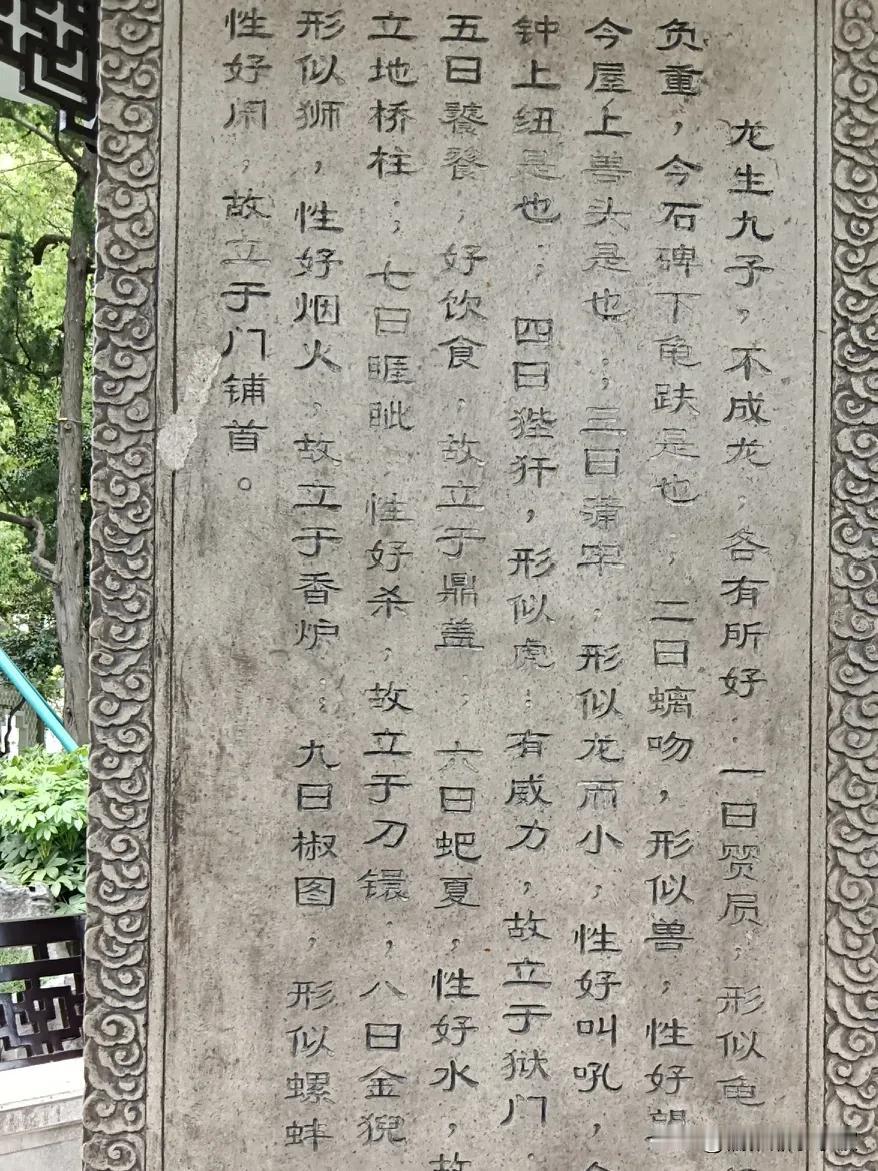 龙生九子，不成龙，各有所好．一曰赑屃，形似龟
负重，今石碑下龟趺是也；二曰螭吻，形似兽，性好望
今屋上兽头是也；三曰蒲牢．形似龙而小，性好叫吼，今
钟上纽是也；四曰狴犴，形似虎．有威力，故立于狱门．
五曰饕餮，好饮食，故立于鼎盖．六曰𧈢夏，性好水，故
立地桥柱；七曰睚眦，性好杀，故立于刀镮；八曰金猊
形似狮，性好烟火，故立于香炉；九曰椒图，形似螺蚌
性好闭，故立于门铺首。